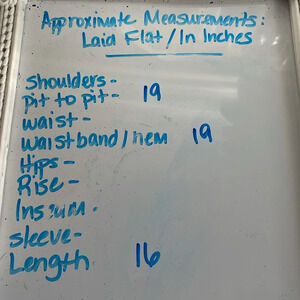 Approximate Measurements:
Laid Flat/In Inches
Shoulders-
pit to pit- 19
waist-
waistband/hem 19
Hips-
Rise-
Inseam-
sleeve-
Length 16